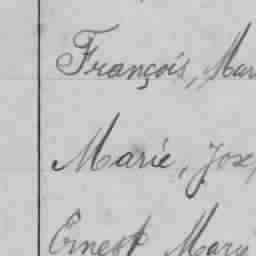 François, Mar
Marie, Jos
Ernest Mary